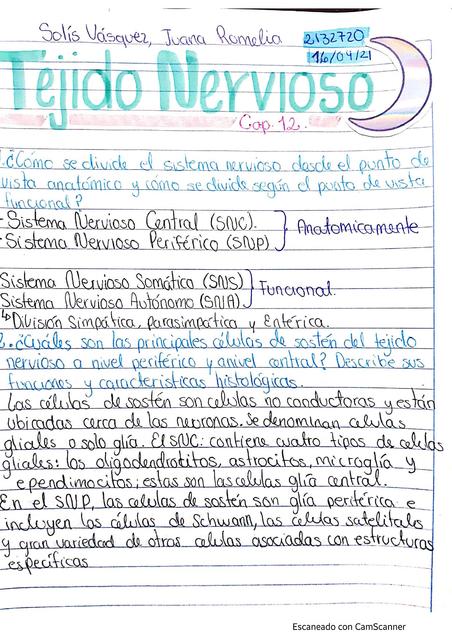 Solís Vásquez, Juana Romelia 2132720
16/04/21
Tejido Nervioso
Cap. 12.
1. ¿Cómo se divide el sistema nervioso desde el punto de
vista anatómico y cómo se divide según el punto de vista
funcional?
-Sistema Nervioso Central (SNC).
-Sistema Nervioso Periférico (SNP)
Anatomicamente
Sistema Nervioso Somático (SNS)
Sistema Nervioso Autónomo (SNA)
Funcional.
↳División Simpática, parasimpatica y Entérica.
2. ¿Cuáles son las principales células de sostén del tejido
nervioso a nivel periférico y a nivel central? Describe sus
funciones y características histológicas.
Las células de sostén son celulas no conductoras y están
ubicadas cerca de las neuronas. Se denominan celulas
gliales o solo glía. El SNC: contiene cuatro tipos de celulas
gliales: los oligodendrotitos, astrocitos, microglía y
ependimocitos; estas son las celulas glía central.
En el SNP, las celulas de sostén son glía periférica e
incluyen las células de Schwann, las celulas satelitales
y gran variedad de otras celulas asociadas con estructuras
específicas
Escaneado con CamScanner